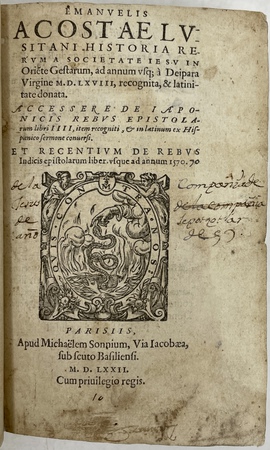 EMANVELIS
ACOSTAE LV-
SITANI HISTORIA RE-
RVM A SOCIETATE IESV IN
Oriẽte Gestarum, ad annum vsq; à Deipara
Virgine M.D.LXVIII, recognita, & latini-
tate donata.
ACCESSERE DE IAPO-
NICIS REBVS EPISTOLA-
rum libri IIII, item recogniti, & in latinum ex His-
panico sermone conuersi.
ET RECENTIVM DE REBVS
Indicis epistolarum liber. vsque ad annum 1570. 70
de la
Compañia de
Jesus
de la compañia
de
año
de 59
QVIS CONTRA NOS
PARISIIS,
Apud Michaëlem Sonnium, Via Iacobæa,
sub scuto Basiliensi.
M. D. LXXII.
Cum priuilegio regis.